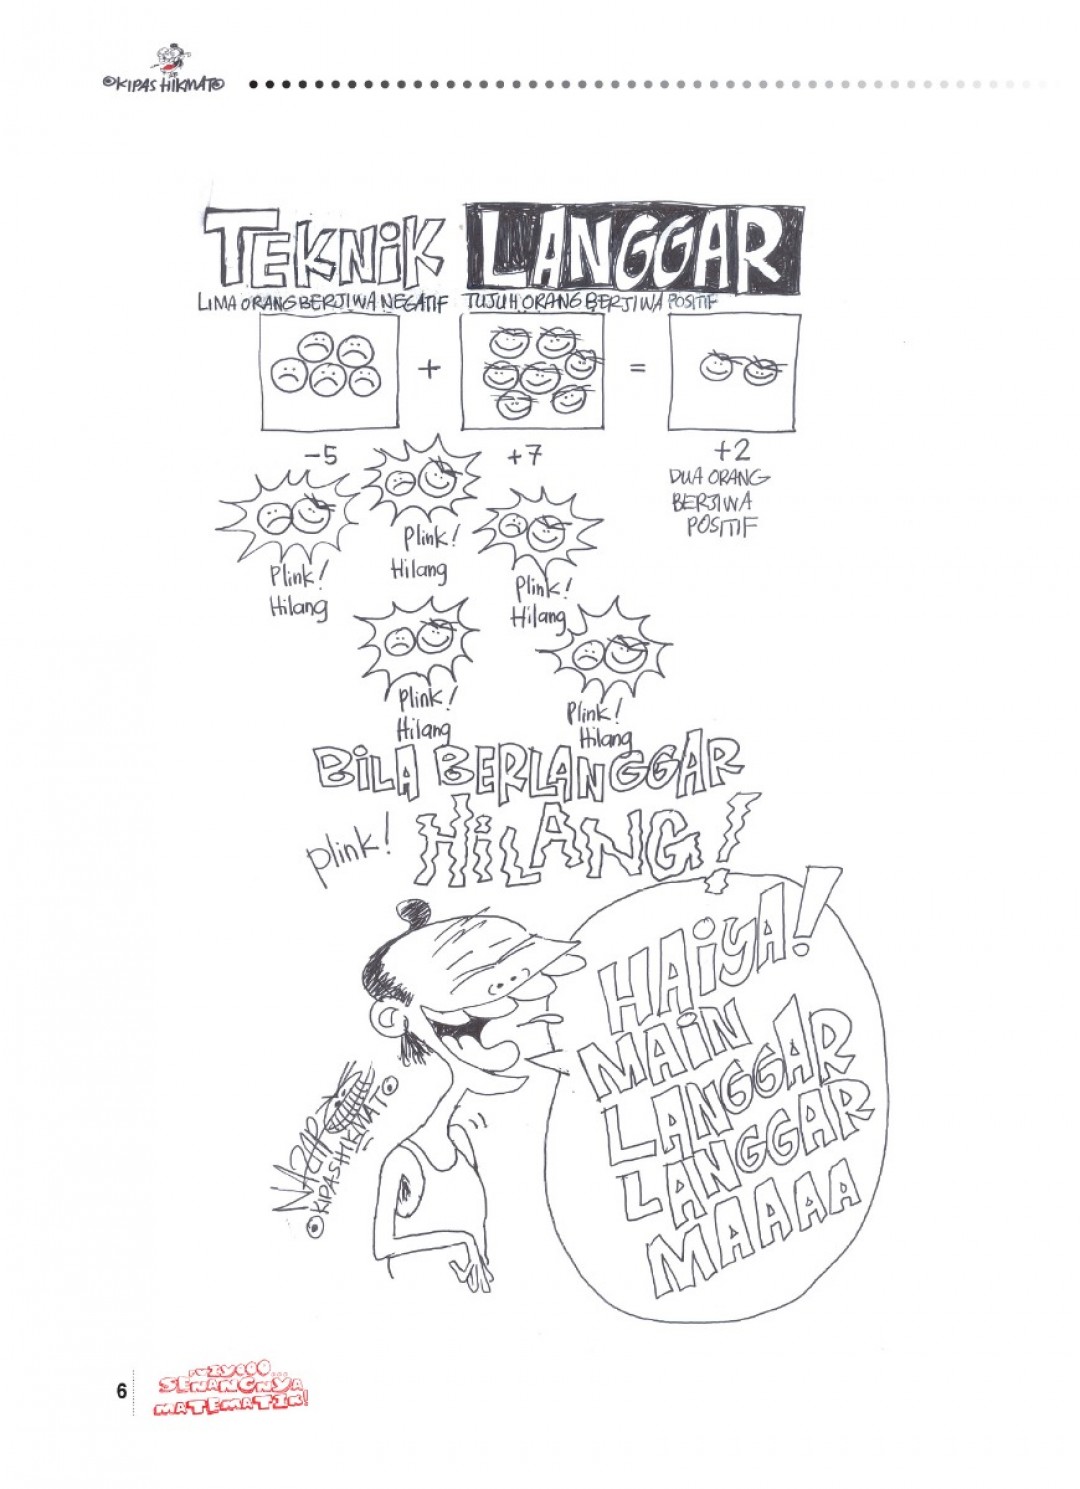 ©KIPAS HIKMAT©
TEKNIK LANGGAR
LIMA ORANG BERJIWA NEGATIF TUJUH ORANG BERJIWA POSITIF
+ =
-5 +7 +2
DUA ORANG
BERJIWA
POSITIF
Plink!
Hilang
Plink!
Hilang
Plink!
Hilang
Plink!
Hilang
Plink!
Hilang
BILA BERLANGGAR
Plink! HILANG!
HAIYA!
MAIN
LANGGAR
LANGGAR
MAAAA
KIPASHIKMAT
6
SENANGNYA
MATEMATIK!